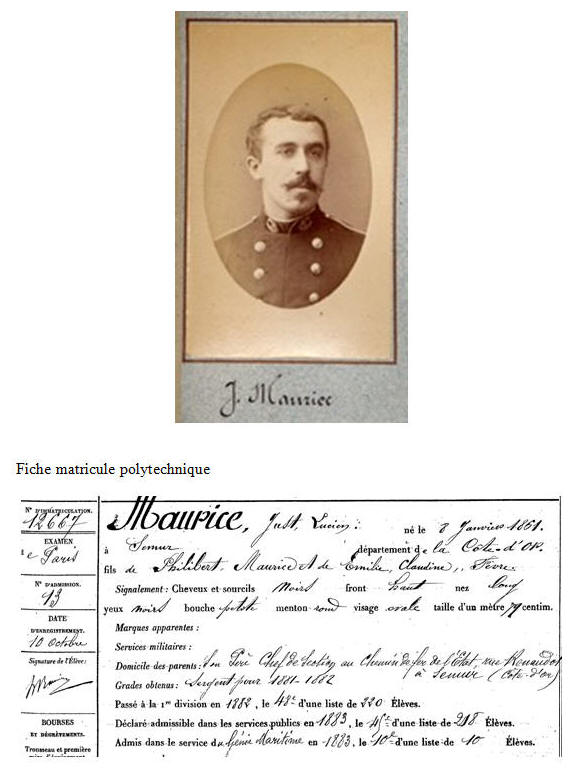 J. Maurice
Fiche matricule polytechnique
N° D'IMMATRICULATION.
12667
EXAMEN
de Paris
N° D'ADMISSION.
13
DATE
D'ENREGISTREMENT.
10 Octobre
Signature de l'Élève:
BOURSES
ET DÉGRÈVEMENTS.
Trousseau et première
Maurice, Just, Lucien: né le 8 Janvier 1861.
à Semur département de la Côte-d'Or.
fils de Philibert, Maurice et de Emilie, Claudine, Fèvre.
Signalement: Cheveux et sourcils noirs front haut nez long
yeux noirs bouche petite menton rond visage ovale taille d'un mètre centim.
Marques apparentes:
Services militaires:
Domicile des parents: Son Père Chef de Section au Chemin de fer de l'État rue Renaudot
à Semur (Côte-d'Or)
Grades obtenus: Sergent pour 1881-1882
Passé à la 1re division en 1882, le 48e d'une liste de 220 Élèves.
Déclaré admissible dans les services publics en 1883, le d'une liste de 218 Élèves.
Admis dans le service du Génie Maritime en 1883, le 10e d'une liste de 10 Élèves.